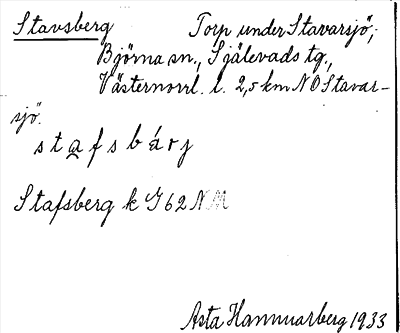 Stavsberg Torp under Stavarsjö,
Björna sn., Själevads tg.,
Västernorrl. l. 2,5 km NO Stavar-
sjö.
stafsbárj
Stafsberg k G 62 N M
Asta Hammarberg 1933